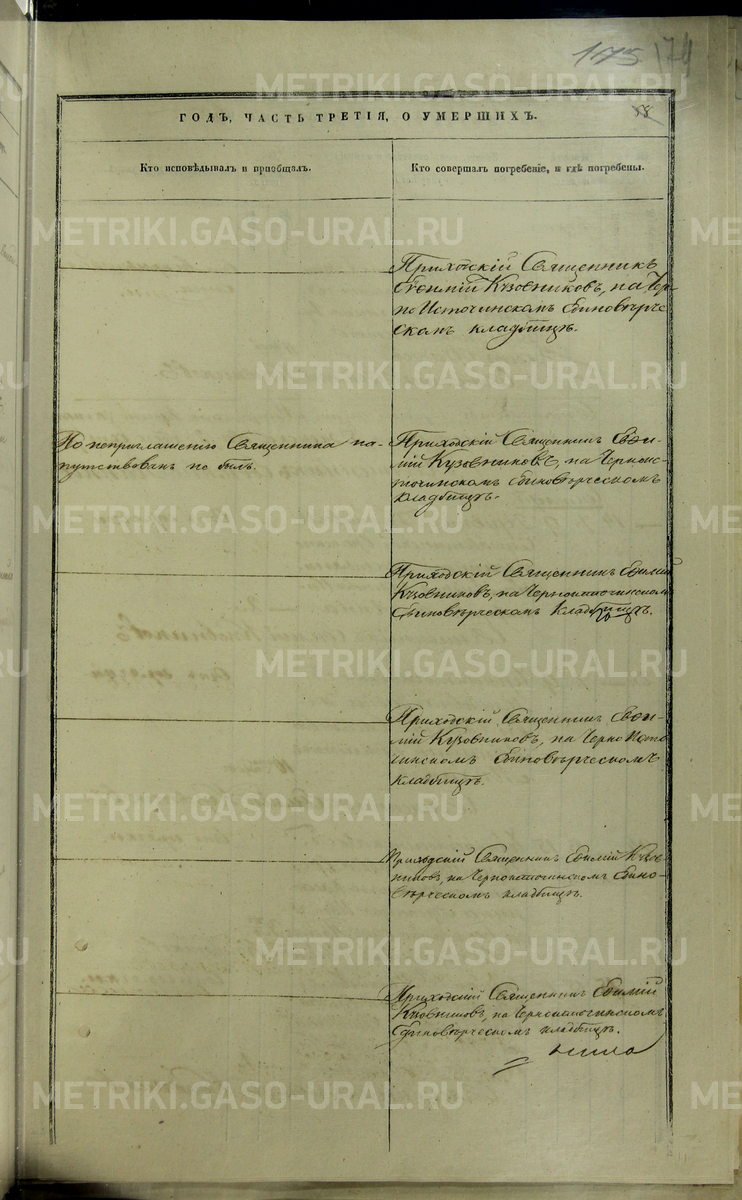 175 174
METRIKI.GASO-URAL.RU
ГОДЪ, ЧАСТЬ ТРЕТІЯ, О УМЕРШИХЪ.
Кто исповѣдывалъ и пріобщалъ.
Кто совершалъ погребеніе, и гдѣ погребены.
METRIKI.GASO-URAL.RU
Приходскій Священникъ
Евѳимій Кузовниковъ, на Чер-
но Источинскомъ Единовѣрче-
скомъ кладбищѣ.
METRIKI.GASO-URAL.RU
По неприглашенію Священника на-
путствованъ не былъ.
Приходскій Священникъ Евѳи-
мій Кузовниковъ, на Черноис-
точинскомъ Единовѣрческомъ
кладбищѣ.
METRIKI.GASO-URAL.RU
Приходскій Священникъ Евѳимій
Кузовниковъ, на Черноисточинскомъ
Единовѣрческомъ кладбищѣ.
METRIKI.GASO-URAL.RU
Приходскій Священникъ Евѳи-
мій Кузовниковъ, на Черно Исто-
чинскомъ Единовѣрческомъ
кладбищѣ.
METRIKI.GASO-URAL.RU
Приходскій Священникъ Евѳимій Кузов-
никовъ, на Черноисточинскомъ Едино-
вѣрческомъ кладбищѣ.
METRIKI.GASO-URAL.RU
Приходскій Священникъ Евѳимій
Кузовниковъ, на Черноисточинскомъ
Единовѣрческомъ кладбищѣ.
METRIKI.GASO-URAL.RU